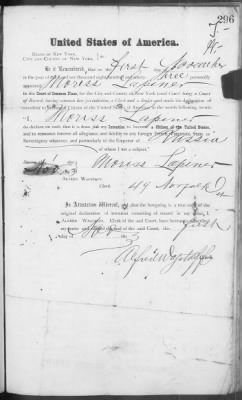 296
United States of America.
STATE OF NEW YORK,
CITY AND COUNTY OF NEW YORK,
Be it Remembered, that on the First
in the year of our Lord one thousand eight hundred and ninety Three personally
appeared Moriss Lapiner
in the Court of Common Pleas, for the City and County of New York (said Court being a Court of
Record, having common law jurisdiction, a Clerk and a Seal) and made his declaration of
intention to become a Citizen of the United States of America, in the words following, to wit:
I, Moriss Lapiner
do declare on oath, that it is bona fide my Intention to become a Citizen of the United States,
and to renounce forever all allegiance and fidelity to any Foreign Prince, Potentate, State or
Sovereignty whatever, and particularly to the Emperor of Russia
Moriss Lapiner
ALFRED WAGSTAFF,
Clerk. 49 Norfolk
In Attestation Whereof, and that the foregoing is a true copy of the
original declaration of intention remaining of record in my office, I,
ALFRED WAGSTAFF, Clerk of the said Court, have hereunto subscribed
my name and affixed the seal of the said Court, the first
day of Nov 3
Alfred Wagstaff